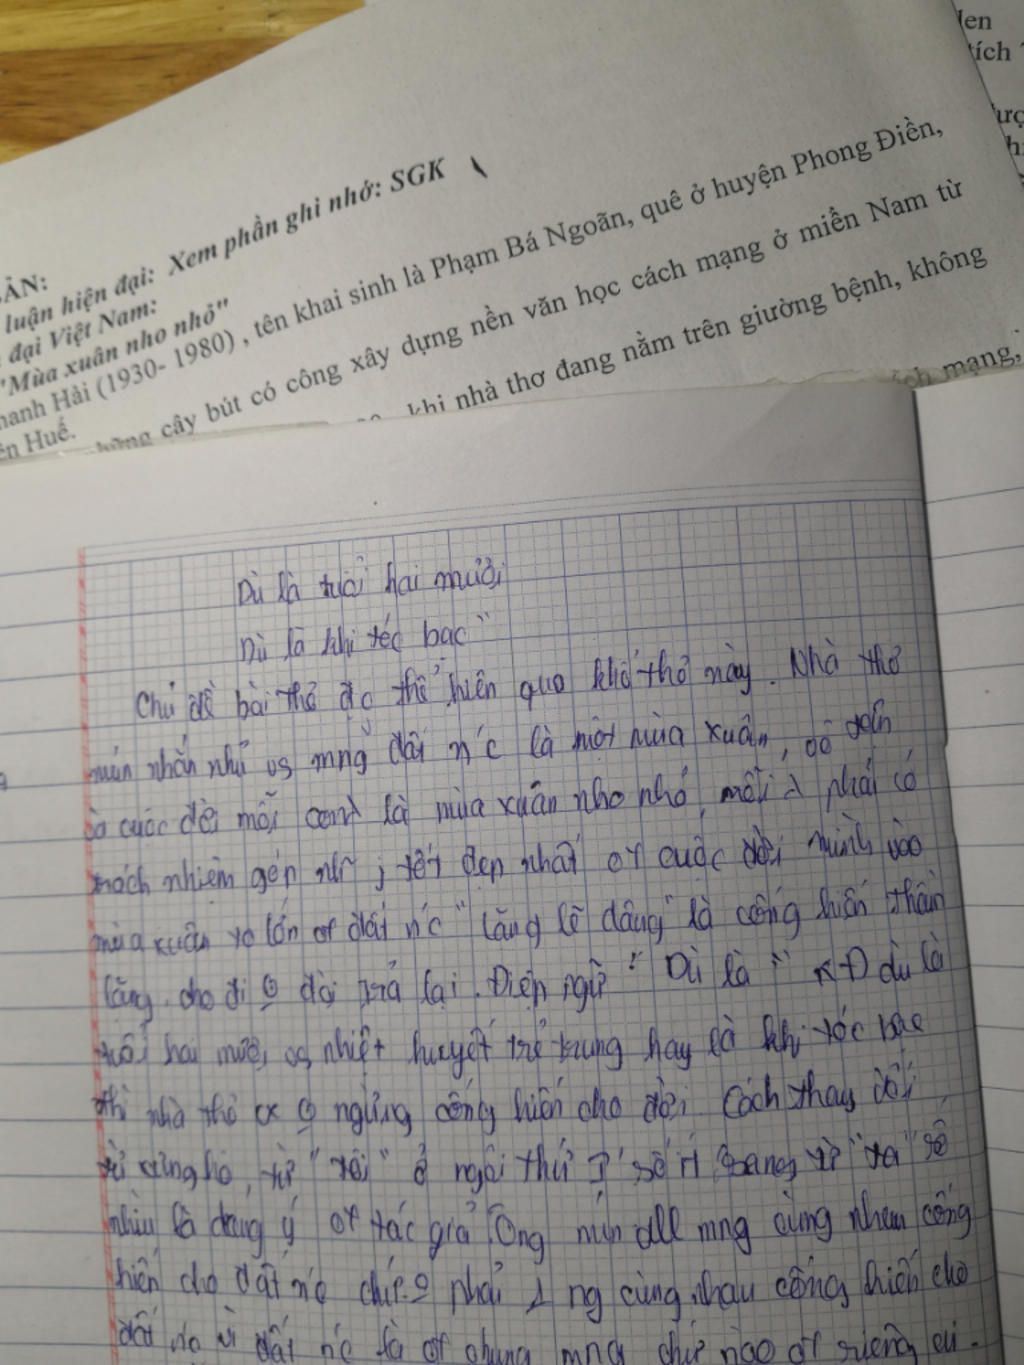 len
tích
ẢN:
luận hiện đại: Xem phần ghi nhớ: SGK
đại Việt Nam:
"Mùa xuân nho nhỏ"
hanh Hải (1930- 1980) , tên khai sinh là Phạm Bá Ngoãn, quê ở huyện Phong Điền,
ên Huế.
cây bút có công xây dựng nền văn học cách mạng ở miền Nam từ
khi nhà thơ đang nằm trên giường bệnh, không
ch mạng,
Dù là tuổi hai mươi
Dù là khi tóc bạc"
Chủ đề bài thơ đc thể hiện qua khổ thơ này. Nhà thơ
mún nhắn nhủ vs mng đất n'c là một mùa xuân, dô dồn
cuộc đời mỗi con là mùa xuân nho nhỏ, mỗi phải có
trách nhiệm góp j tốt đẹp nhất of cuộc đời mình vào
mùa xuân to lớn of đất n'c "lặng lẽ dâng" là cống hiến thầm
lặng, cho đi đòi trả lại. Điệp ngữ "Dù là" KĐ dù là
tuổi hai mươi vs nhiệt huyết trẻ trung hay là khi tóc bạc
thì nhà thơ ngừng cống hiến cho đời. Cách thay đổi
từ xưng hô, từ "tôi" ở ngôi thứ I số ít sang từ "ta" số
nhìu là dụng ý of tác giả. Ông mún all mng cùng nhau cống
hiến cho đất n'c chứ phải 1 ng cùng nhau cống hiến cho
đất n'c vì đất n'c là of chung mng chứ nào of riêng ai.